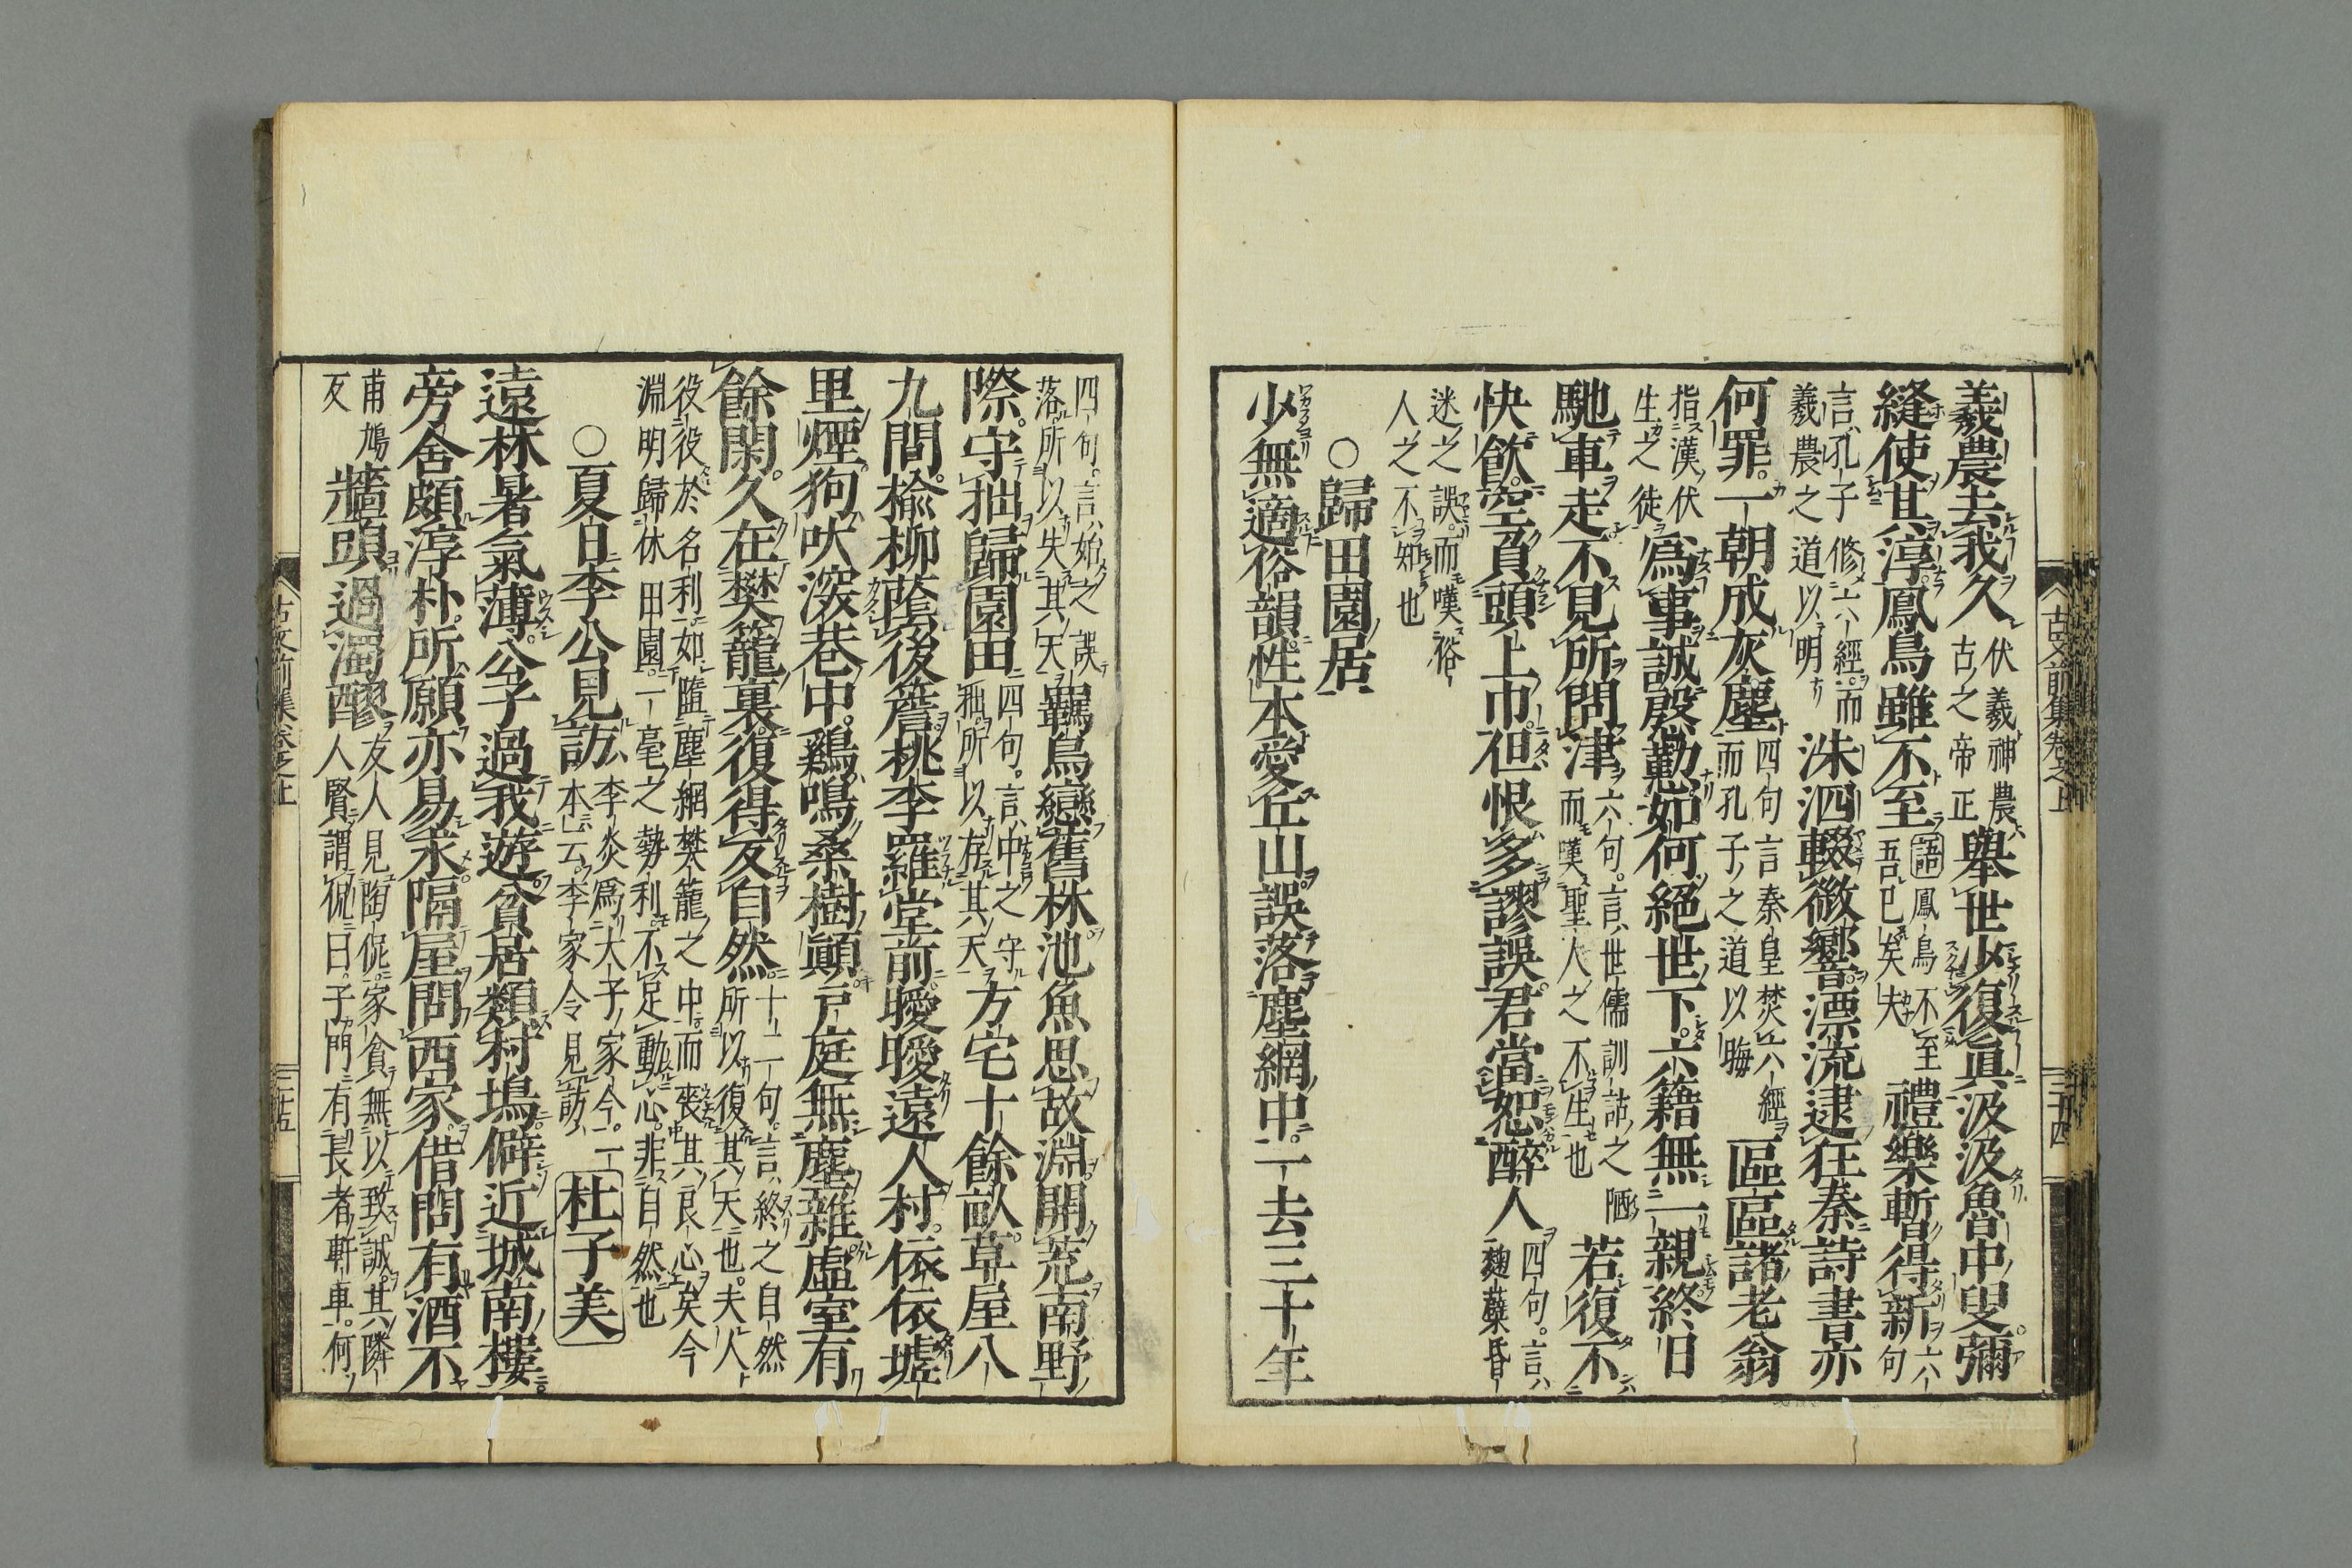 羲農去我久伏羲神農古之帝正舉世少復眞汲汲魯中叟彌
縫使其淳鳳鳥雖不至語鳳鳥不至吾已矣夫禮樂暫得新六句
言孔子修六經而羲農之道以明洙泗輟微響漂流逮狂秦詩書亦
何罪一朝成灰塵四句言秦皇焚六經而孔子之道以晦區區諸老翁
指漢伏生之徒爲事誠殷勤如何絕世下六籍無一親終日
馳車走不見所問津六句言世儒訓詁之陋而嘆聖人之不生也若復不
快飲空負頭上巾但恨多謬誤君當恕醉人四句言麹蘖昏
迷之誤而嘆俗人之不知也
○歸田園居
少無適俗韻性本愛丘山誤落塵網中一去三十年
古文前集卷之上
三十四
四句言始之誤落所以失其天羈鳥戀舊林池魚思故淵開荒南野
際守拙歸園田四句言中之守拙所以存其天方宅十餘畝草屋八
九間楡柳蔭後簷桃李羅堂前曖曖遠人村依依墟
里煙狗吠深巷中鷄鳴桑樹顚戸庭無塵雜虛室有
餘閑久在樊籠裏復得反自然十二句言終之自然所以復其天也夫人
役役於名利如墮塵網樊籠之中而喪其良心矣今淵明歸休田園一毫之勢利不足動心非自然也
○夏日李公見訪李炎爲大子家令一本云李家令見訪杜子美
遠林暑氣薄公子過我遊貧居類村塢僻近城南樓
旁舍頗淳朴所願亦易求隔屋問西家借問有酒不
甫鳩反牆頭過濁醪友人見陶侃家貧無以致誠其隣人賢謂侃曰子門有長者軒車何
古文前集卷之上
三十五